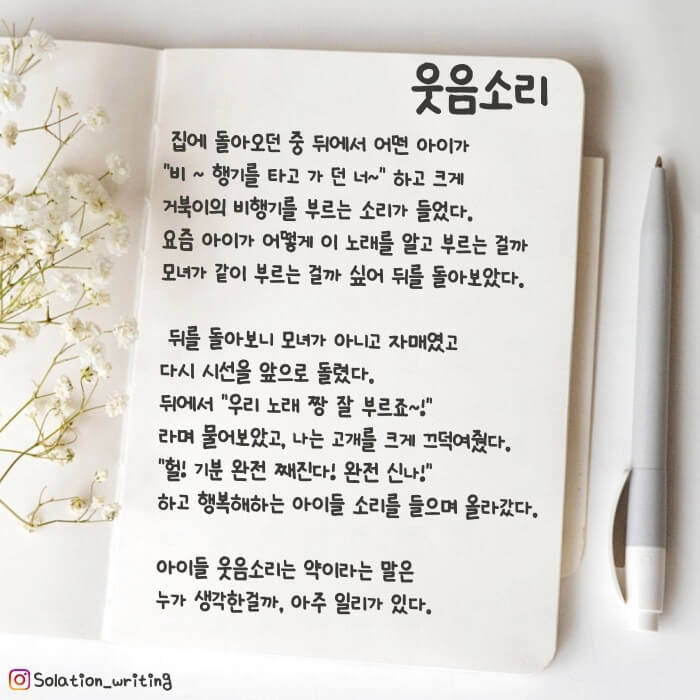 웃음소리
집에 돌아오던 중 뒤에서 어떤 아이가
"비 ~ 행기를 타고 가 던 너~" 하고 크게
거북이의 비행기를 부르는 소리가 들었다.
요즘 아이가 어떻게 이 노래를 알고 부르는 걸까
모녀가 같이 부르는 걸까 싶어 뒤를 돌아보았다.
뒤를 돌아보니 모녀가 아니고 자매였고
다시 시선을 앞으로 돌렸다.
뒤에서 "우리 노래 짱 잘 부르죠~!"
라며 물어보았고, 나는 고개를 크게 끄덕여줬다.
"헐! 기분 완전 째진다! 완전 신나!"
하고 행복해하는 아이들 소리를 들으며 올라갔다.
아이들 웃음소리는 약이라는 말은
누가 생각한걸까, 아주 일리가 있다.
Solation_writing